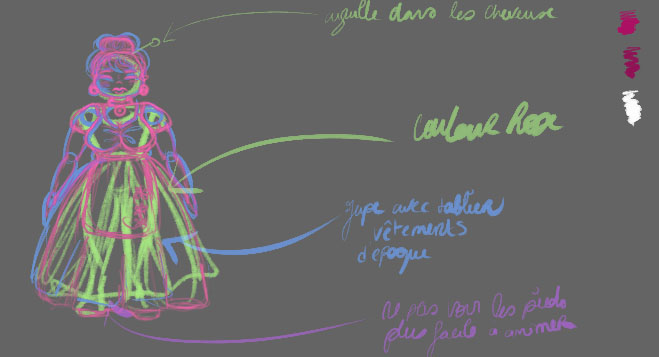 aiguille dans les cheveuse
Couleur Rose
jupe avec tablier
vêtements
d'epoque
ne pas voir les pieds
plus facile a animer